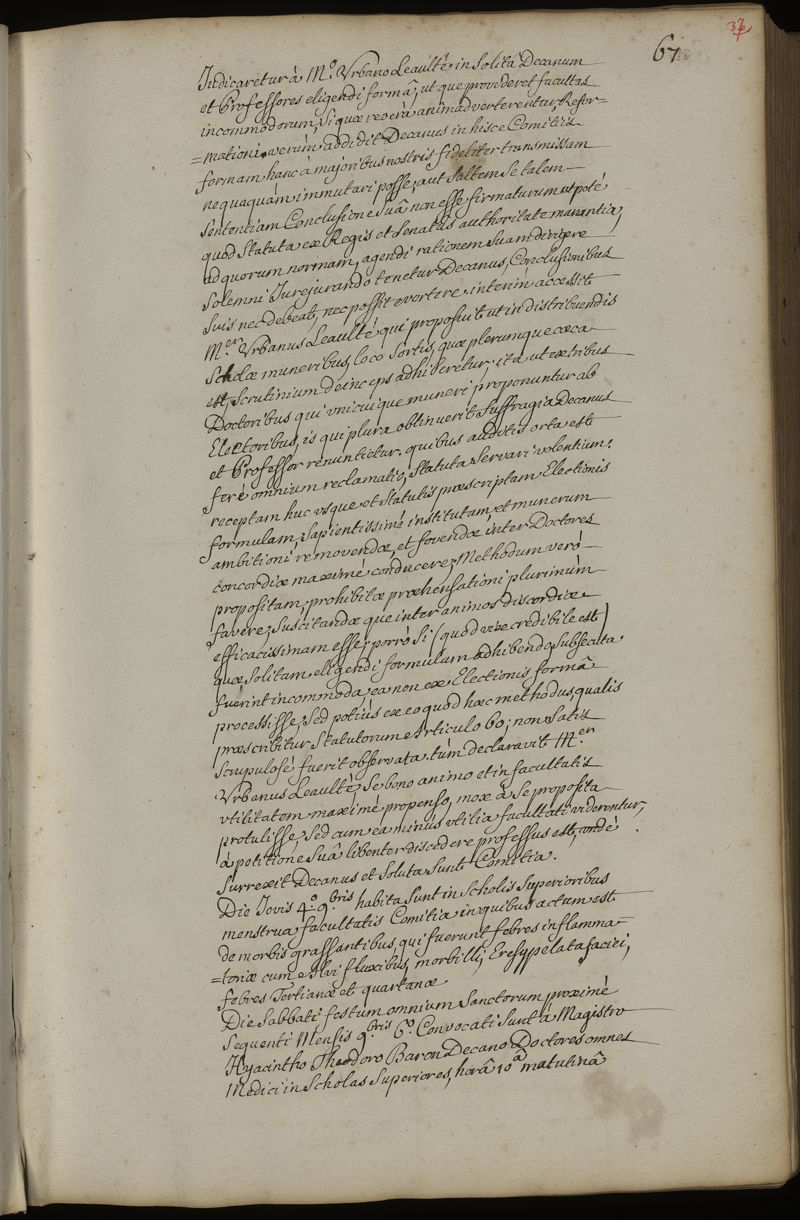 37
67
Indicaretur à M.º Urbano Leaulté in solitâ Decanum
et Professores eligendi formâ, ut que provideret facultas
incommodorum, si quæ reverà animadverterentur, Refor=
=mationi, verùm addidit Decanus in hisce Comitiis
formam hanc à majoribus nostris fideliter transmissam
nequaquàm immutari posse, aut saltem se talem
sententiam Conclusione suâ non esse firmaturum ut potè
quod statuta ex Regis et Senatûs authoritate manantia,
ad quorum normam, agendi rationem suam dirigere
solemni Jurejurando tenetur Decanus, Conclusionibus
suis nec debeat, nec possit evertere. interim accessit
M.er Urbanus Leaulté qui proposuit ut in distribuendis
scholæ muneribus, loco sortis, quæ plerumque cæca
est, scrutinium deinceps adhiberetur; ita ut ex tribus
Doctoribus qui unicuique muneri proponuntur ab
Electoribus, is qui plura obtinuerit suffragia Decanus
et Professor renuntietur. quibus auditis orta est
ferè omnium reclamatio, statuta servari volentium.
receptam huc usque et statutis præscriptam Electionis
formulam, sapientissimè institutam, et munerum
ambitioni removendæ, et fovendæ inter Doctores
concordiæ maximè conducere, Methodum verò
propositam, prohibitæ præhensationi plurimùm
favere, suscitandæ que inter animos discordiæ
efficacissimam esse; porrò si (quod vix credibile est)
quæ solitam eligendi formulam adhibendo subsecuta
fuerint incommoda, ea non ex Electionis formâ
processisse, sed potiùs ex eo quod hæc methodus, qualis
præscribitur statutorum articulo 60, non satis
scrupulosè fuerit observata. tùm declaravit M.er
Urbanus Leaulté se bono animo et in facultatis
utilitatem maximè propenso, mox à se proposita
protulisse, sed cum ea minus utilia facultati viderentur,
à petitione suâ libenter discedere professus est, undè
surrexit Decanus et soluta sunt Comitia.
Die Jovis 4.º 9.bris habita sunt in Scholis superioribus
menstrua facultatis Comitia in quibus actum est
de morbis grassantibus, qui fuerunt febres inflamma=
=toriæ cum Alvi fluxibus, morbilli, Eresypelata faciei,
febres Tertianæ et quartanæ
Die Sabbati festum omnium Sanctorum proximè
sequenti Mensis 9.bris 6.º Convocati sunt à Magistro
Hyacintho Theodoro Baron Decano Doctores omnes
Medici in Scholas Superiores, horâ 10.â matutinâ